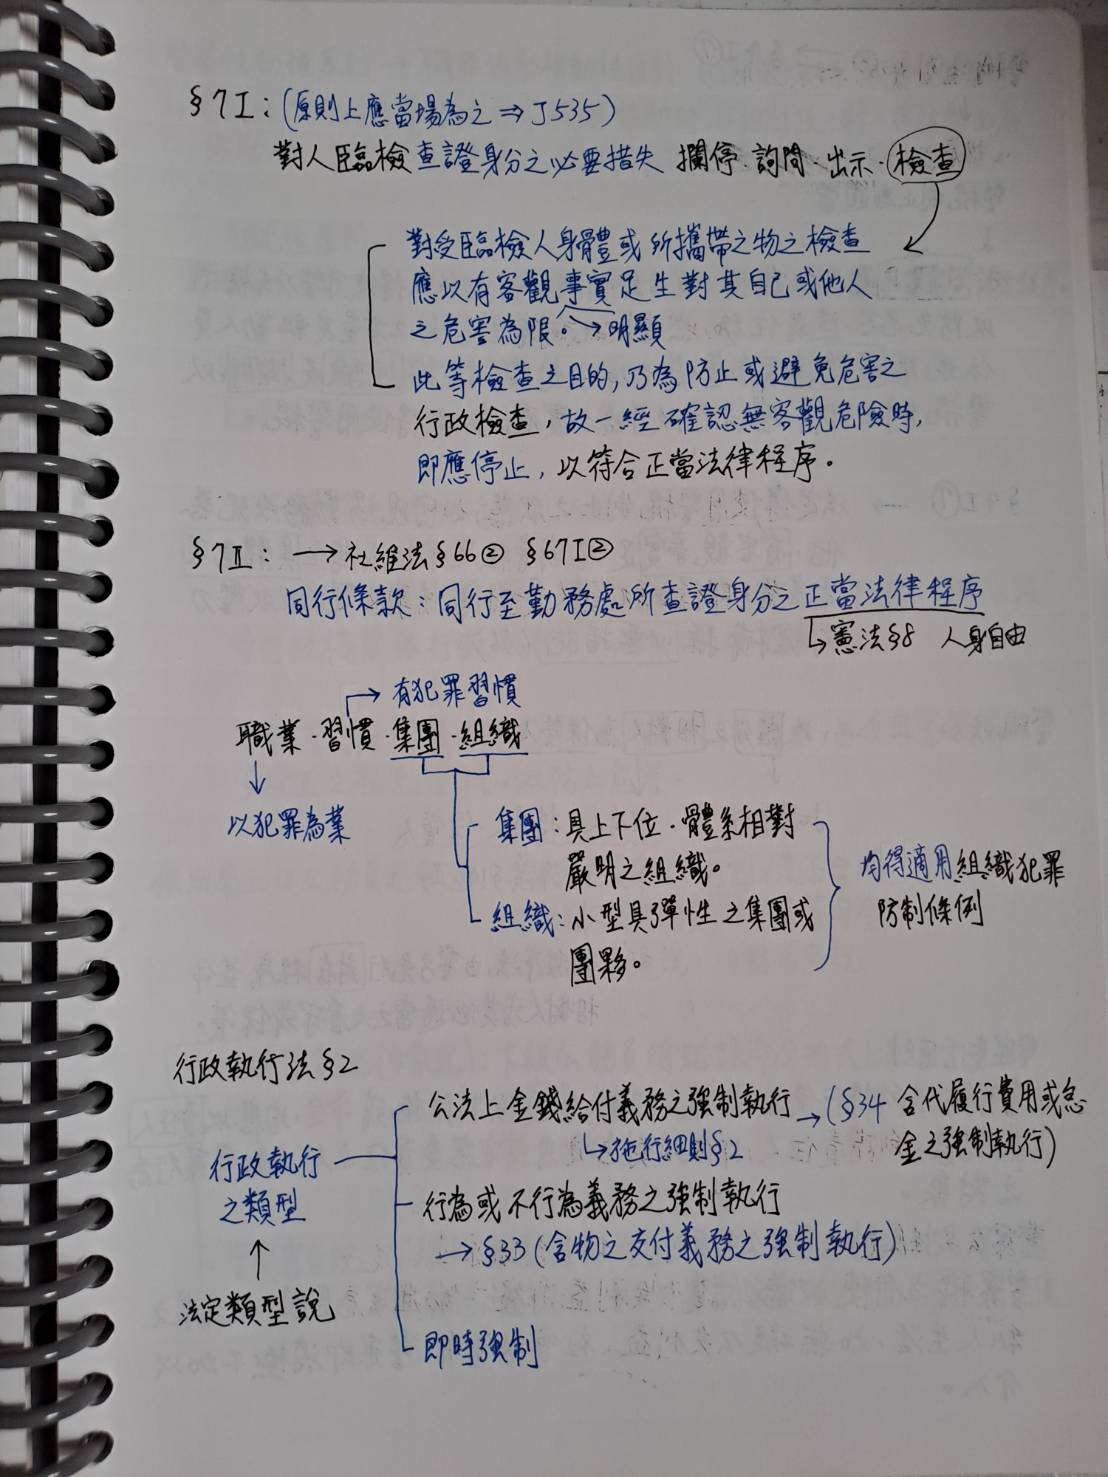 §7I：(原則上應當場為之⇒J535)
對人臨檢查證身分之必要措失 攔停·詢問·出示·檢查
對受臨檢人身體或所攜帶之物之檢查
應以有客觀事實足生對其自己或他人
之危害為限。→明顯
此等檢查之目的，乃為防止或避免危害之
行政檢查，故一經確認無客觀危險時，
即應停止，以符合正當法律程序。
§7Ⅱ：→社維法§66② §67I②
同行條款：同行至勤務處所查證身分之正當法律程序
↳憲法§8 人身自由
→有犯罪習慣
職業·習慣·集團·組織
↓
以犯罪為業
集團：具上下位·體系相對
嚴明之組織。
組織：小型具彈性之集團或
團夥。
均得適用組織犯罪
防制條例
行政執行法§2
行政執行
之類型
↑
法定類型說
公法上金錢給付義務之強制執行→(§34 含代履行費用或怠
金之強制執行)
↳施行細則§2
行為或不行為義務之強制執行
→§33(含物之交付義務之強制執行)
即時強制